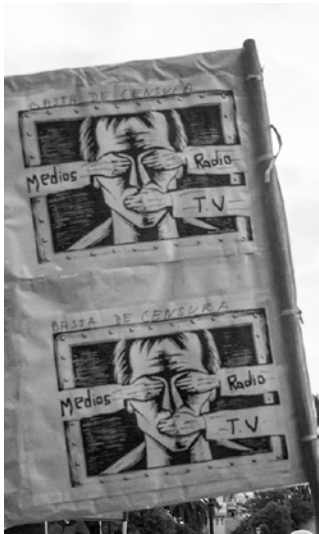 BASTA DE CENSURA
Medios
Radio
T.V
BASTA DE CENSURA
Medios
Radio
T.V